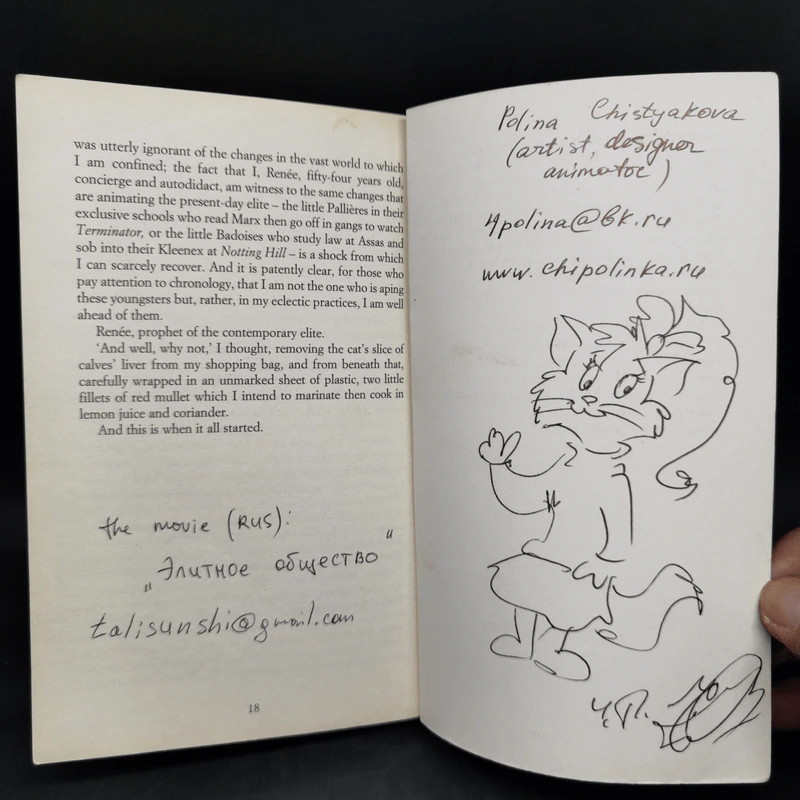 was utterly ignorant of the changes in the vast world to which
I am confined; the fact that I, Renée, fifty-four years old,
concierge and autodidact, am witness to the same changes that
are animating the present-day elite – the little Pallières in their
exclusive schools who read Marx then go off in gangs to watch
Terminator, or the little Badoises who study law at Assas and
sob into their Kleenex at Notting Hill – is a shock from which
I can scarcely recover. And it is patently clear, for those who
pay attention to chronology, that I am not the one who is aping
these youngsters but, rather, in my eclectic practices, I am well
ahead of them.
Renée, prophet of the contemporary elite.
‘And well, why not,’ I thought, removing the cat’s slice of
calves’ liver from my shopping bag, and from beneath that,
carefully wrapped in an unmarked sheet of plastic, two little
fillets of red mullet which I intend to marinate then cook in
lemon juice and coriander.
And this is when it all started.
the movie (RUS):
„Элитное общество"
talisunshi@gmail.com
18
Polina Chistyakova
(artist, designer
animator)
4polina@bk.ru
www.chipolinka.ru
Ч.П.